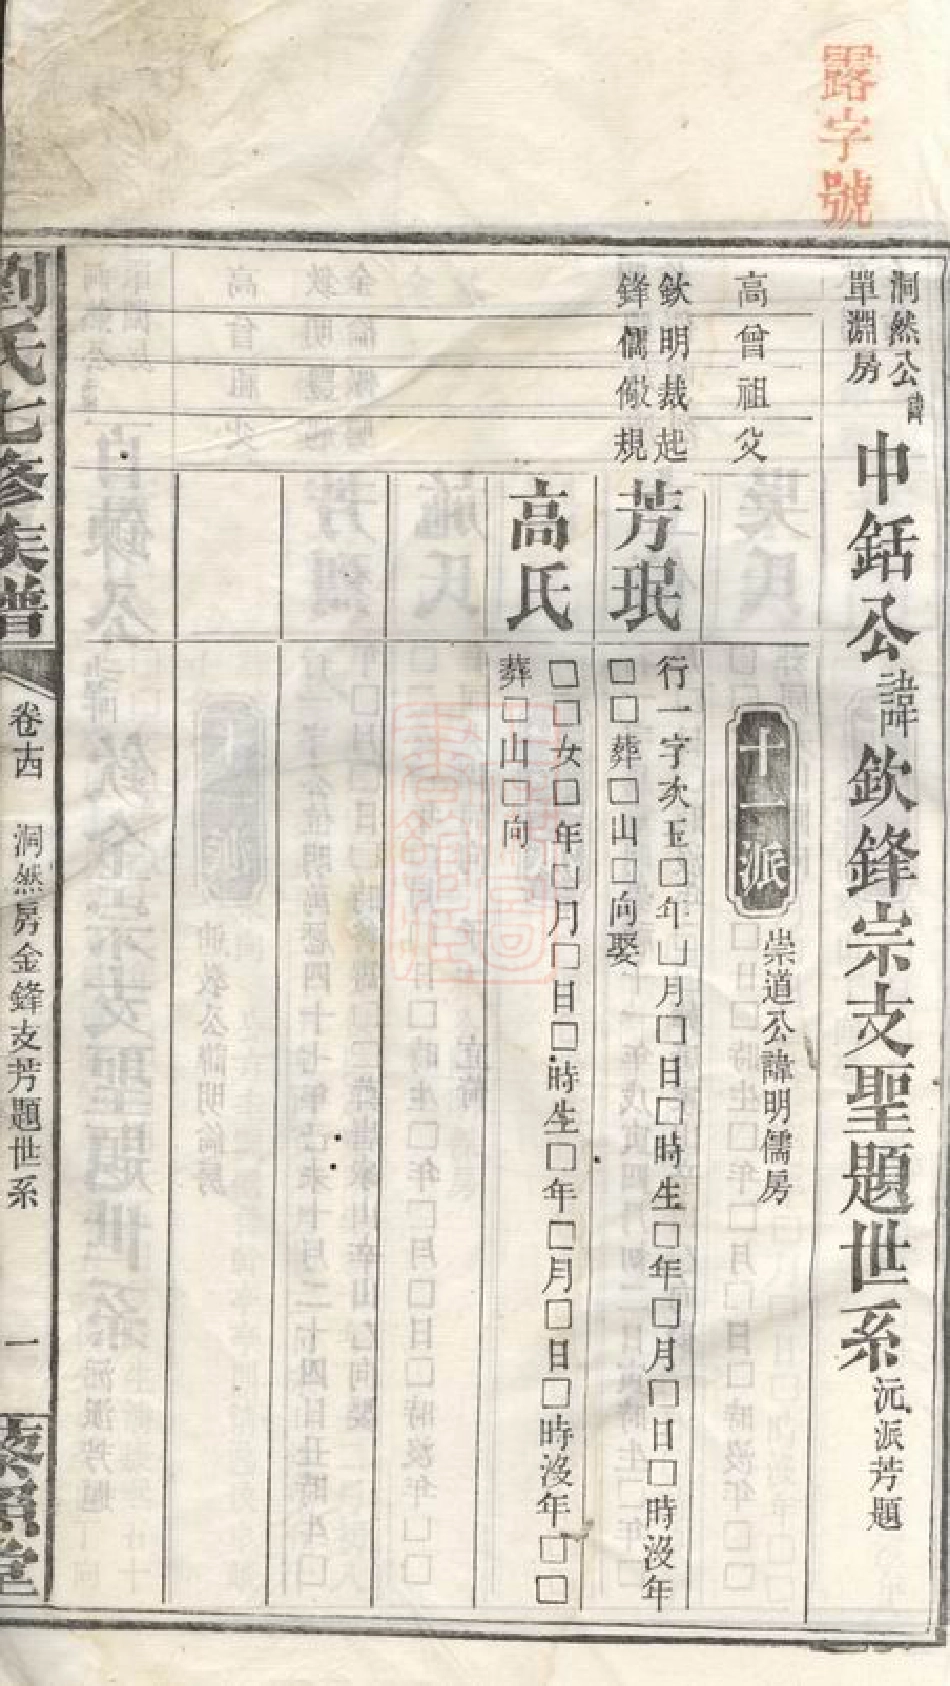 露字號
洞然公諱
單淵房
申銛公諱欽鋒宗支聖題世系
沅派芳題
高曾祖父
十一派
崇道公諱明儒房
欽明裁起
鋒儒儆規
芳珉
行一字次玉□年□月□日□時生□年□月□日□時沒年
□□葬□山□向娶
高氏
□□女□年□月□日□時生□年□月□日□時沒年□□
葬□山□向
劉氏七修族譜
卷十四
洞然房金鋒支芳題世系
一
藜照堂